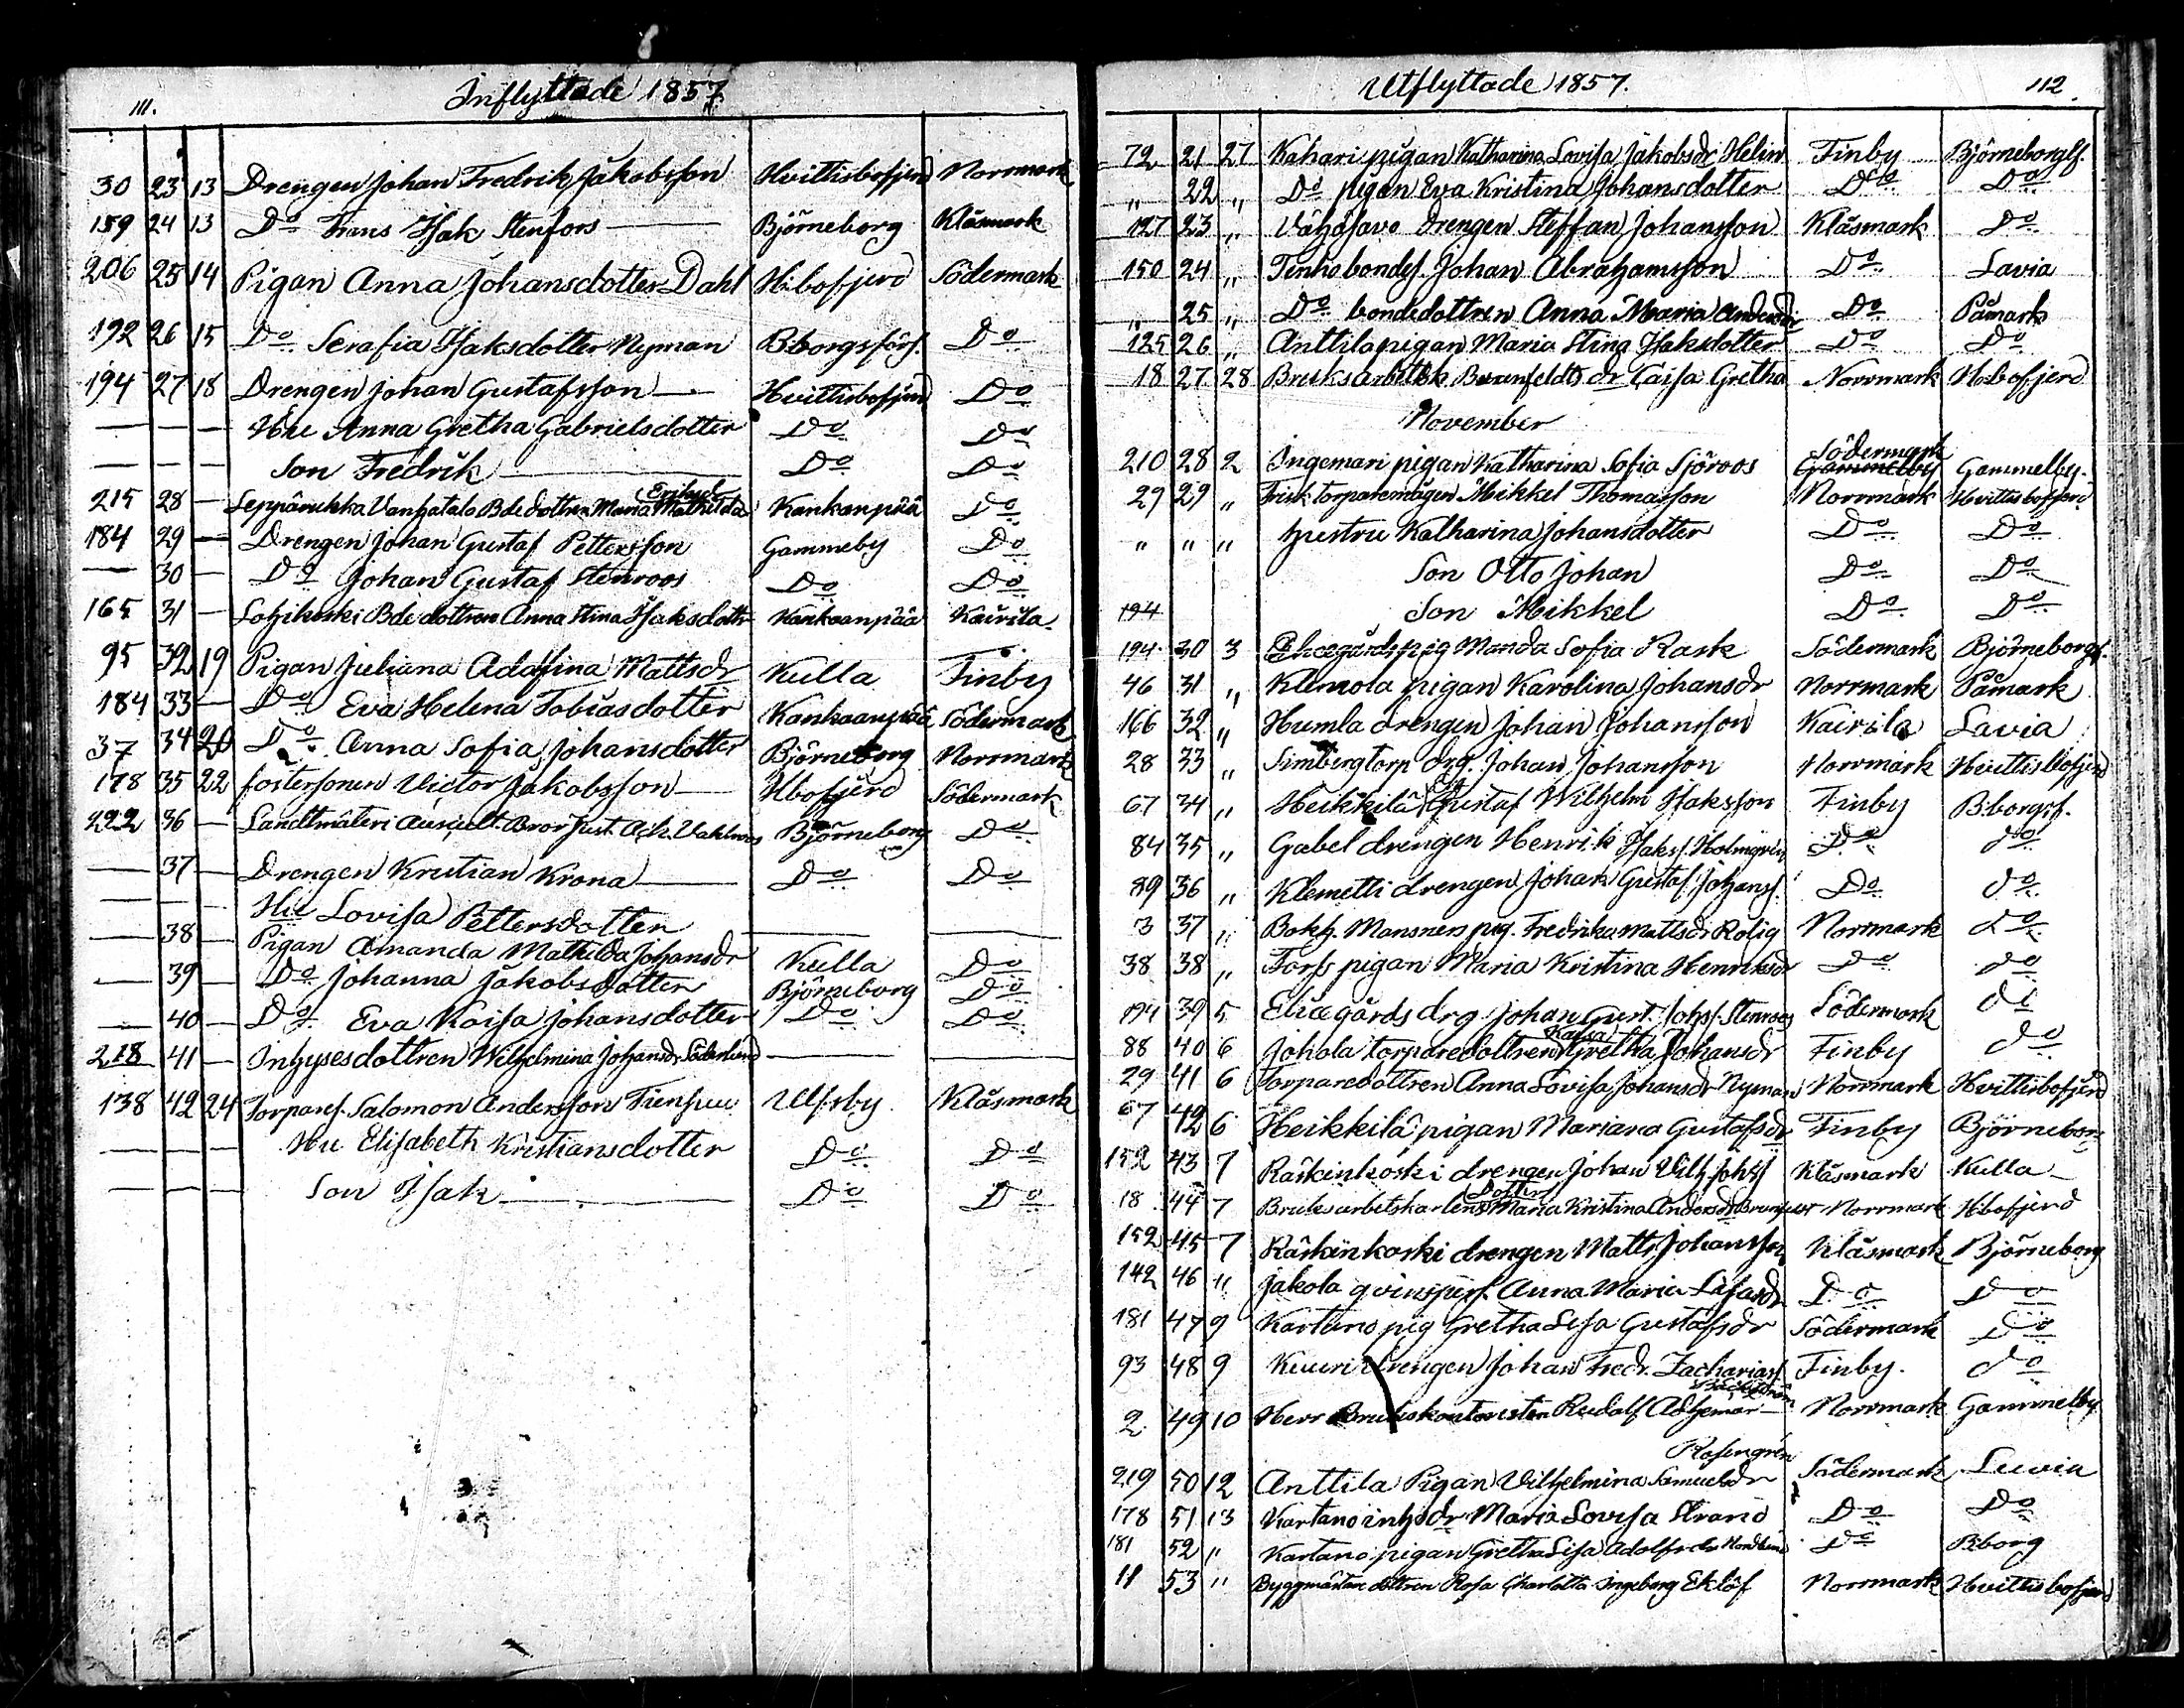 111.
Inflyttade 1857
30 23 13 Drengen Johan Fredrik Jakobsson Hvittisbofjerd Norrmark
159 24 13 Do Frans Isak Stenfors Björneborg Klåsmark
206 25 14 Pigan Anna Johansdotter Dahl H:bofjerd Södermark
192 26 15 Do Serafia Isaksdotter Nyman B:borgsförs. Do
194 27 18 Drengen Johan Gustafsson Hvittisbofjerd Do
— — — Hu Anna Gretha Gabrielsdotter Do Do
— — — Son Fredrik Do Do
Eriksdr
215 28 — Seppärukka Vanhatalo Bdedottren Maria Mathilda Kankanpää Do
184 29 — Drengen Johan Gustaf Pettersson Gammeby Do
— 30 — Do Johan Gustaf Stenroos Do Do
165 31 — Lohikoski Bdedottren Anna Stina Isaksdottr Kankaanpää Kairila
95 32 19 Pigan Juliana Adafina Mattsdr Kulla Finby
184 33 — Do Eva Helena Tobiasdotter Kankaanpää Södermark
37 34 20 Do Anna Sofia Johansdotter Björneborg Norrmark
178 35 22 Fostersonen Victor Jakobsson Hbofjerd Södermark
222 36 — Landtmäteri Auscult. Bror Just. Ach. Björneborg Do
— 37 — Drengen Kristian Krona Do Do
— — — Hu Lovisa Pettersdotter
— 38 — Pigan Amanda Mathilda Johansdr Kulla Do
— 39 — Do Johanna Jakobsdotter Björneborg Do
— 40 — Do Eva Kaisa Johansdotter Do Do
218 41 — Inhysesdottren Wilhelmina Johansdr Söderlund
138 42 24 Torpares. Salomon Andersson Ulfsby Klåsmark
— — — Hu Elisabeth Kristiansdotter Do Do
— — — Son Isak Do Do
Utflyttade 1857.
112.
72 21 27 Kahari pigan Katharina Lovisa Jakobsdr Helin Finby Björneborgsf.
" 22 " Do pigan Eva Kristina Johansdotter Do Do
127 23 " Vähäsavo Drengen Steffan Johansson Klåsmark Do
150 24 " Tenho bondes. Johan Abrahamsson Do Lavia
" 25 " Do bondedottren Anna Maria Andersdr Do Påmark
125 26 " Anttila pigan Maria Stina Isaksdotter Do Do
18 27 28 Bruksarbetsk. dr Caisa Gretha Norrmark H:bofjerd
November
Södermark
210 28 2 Ingemari pigan Katharina Sofia Sjöroos Gammelby Gammelby.
29 29 " Frisk torparemågen Mikkel Thomasson Norrmark Hvittisbofjerd
" " " hustru Katharina Johansdotter Do Do
Son Otto Johan Do Do
194 Son Mikkel Do Do
194 30 3 pig Manda Sofia Rask Södermark Björneborgsf.
46 31 " Klemola pigan Karolina Johansdr Norrmark Påmark
166 32 " Humla drengen Johan Johansson Kairila Lavia
28 33 " Simberg torp drg. Johan Johansson Norrmark Hvittisbofjerd
67 34 " Heikkilä Gustaf Wilhelm Isaksson Finby B:borgsf.
84 35 " Gabel drengen Henrik Isakss. Holmgren Do do
89 36 " Klemetti drengen Johan Gustaf Johanss. Do do
3 37 " Bokh. Mansners pig. Fredrika Mattsdr Rolig Norrmark do
38 38 " Forss pigan Maria Kristina Henriksdr Do do
194 39 5 Eliægårds drg Johan Gust. Johss. Stenroos Södermark do
Kajsa
88 40 6 Johola torparedottren Gretha Johansdr Finby do
29 41 6 Torparedottren Anna Lovisa Johansdr Nyman Norrmark Hvittisbofjerd
67 42 6 Heikkilä pigan Mariana Gustafsdr Finby Björneborg
152 43 7 Räikinkoski drengen Johan Vilh. Johss Klåsmark Kulla
Dotter
18 44 7 Bruksarbetskarlens Maria Kristina Andersdr Norrmark Hbofjerd
152 45 7 Räikinkoski drengen Matts Johansson Klåsmark Björneborg
142 46 " Jakola qvinspers. Anna Maria Do Do
181 47 9 Kartano pig Gretha Lisa Gustafsdr Södermark Do
93 48 9 Kuuri drengen Johan Fredr. Zachariass. Finby. do
2 49 10 Herr Brukskontoristen Rudolf Adhemar Norrmark Gammelby
Rosengren
219 50 12 Anttila Pigan Vilhelmina Samuelsdr Södermark Luvia
178 51 13 Kartano inhs dr Maria Lovisa Strand Do Do
181 52 " Kartano pigan Gretha Lisa Adolfsdr Do B:borg
11 53 " Byggmästare dottren Rosa Charlotta Ingeborg Eklöf Norrmark Hvittisbofjerd